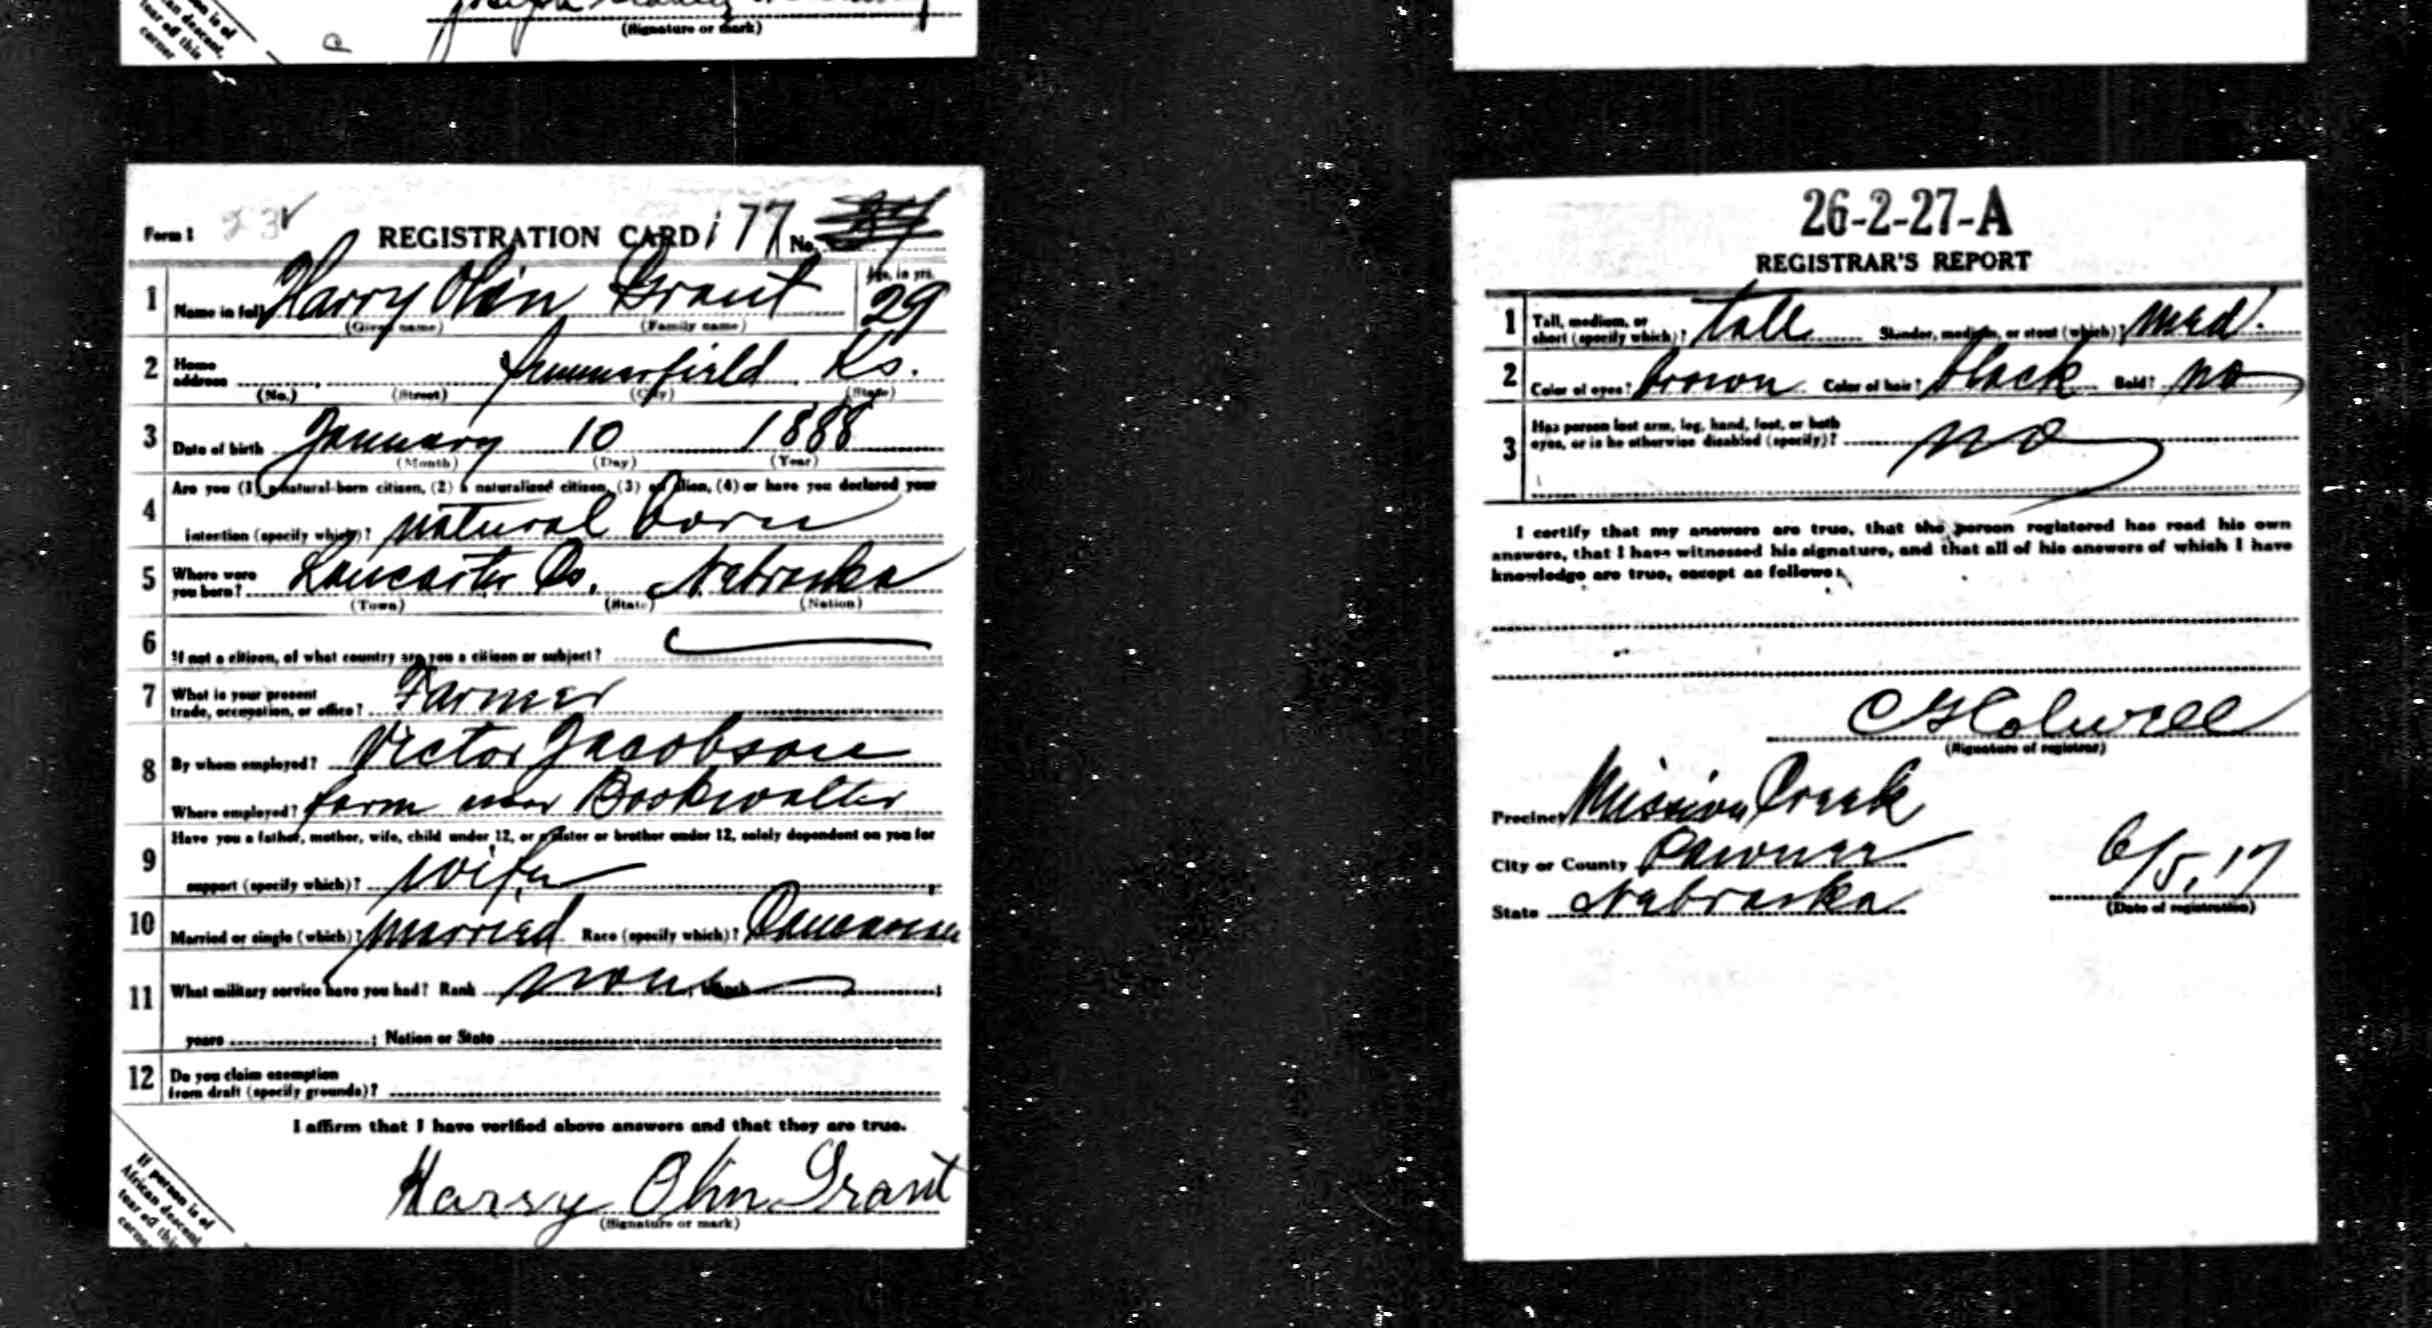 (Signature or mark)
If person is of
African descent,
tear off this
corner
Form 1 REGISTRATION CARD 177 No.
1 Name in full Harry Olin Grant Age, in yrs. 29
(Given name) (Family name)
2 Home address Summerfield Ks.
(No.) (Street) (City) (State)
3 Date of birth January 10 1888
(Month) (Day) (Year)
4 Are you (1) a natural-born citizen, (2) a naturalized citizen, (3) an alien, (4) or have you declared your
intention (specify which)? natural born
5 Where were you born? Lancaster Co. Nebraska
(Town) (State) (Nation)
6 If not a citizen, of what country are you a citizen or subject?
7 What is your present
trade, occupation, or office? Farmer
8 By whom employed? Victor Jacobson
Where employed? farm near Bookwalter
9 Have you a father, mother, wife, child under 12, or a sister or brother under 12, solely dependent on you for
support (specify which)? wife
10 Married or single (which)? married Race (specify which)? Caucasian
11 What military service have you had? Rank none ; branch ;
years ; Nation or State
12 Do you claim exemption
from draft (specify grounds)?
I affirm that I have verified above answers and that they are true.
Harry Olin Grant
(Signature or mark)
If person is of
African descent,
tear off this
corner
26-2-27-A
REGISTRAR'S REPORT
1 Tall, medium, or
short (specify which)? tall Slender, medium, or stout (which)? med.
2 Color of eyes? brown Color of hair? black Bald? no
3 Has person lost arm, leg, hand, foot, or both
eyes, or is he otherwise disabled (specify)? no
I certify that my answers are true, that the person registered has read his own
answers, that I have witnessed his signature, and that all of his answers of which I have
knowledge are true, except as follows:
(Signature of registrar)
Precinct Mission Creek
City or County Pawnee
State Nebraska 6/5, 17
(Date of registration)